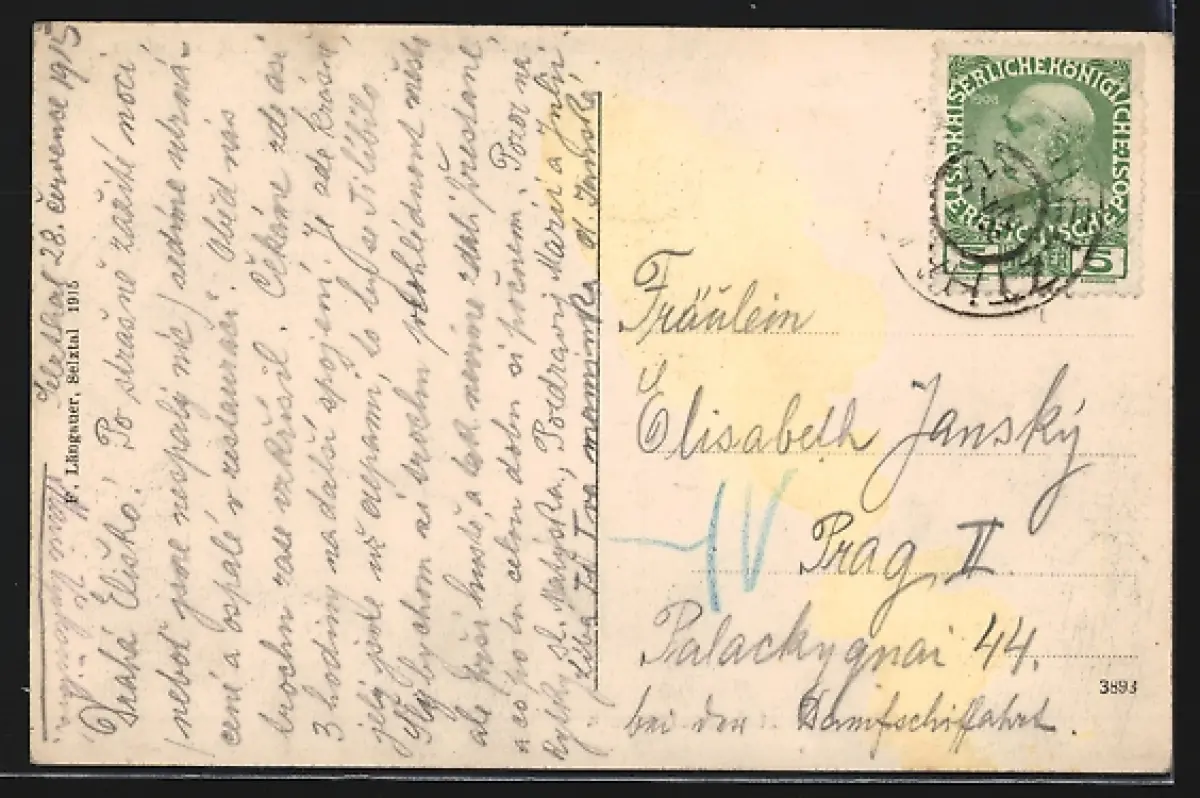 Selzthal 28. července 1915
Drahá Eliško! Po strašné zařité noci
/ neboť jsme nespaly nic / sedíme utrmá-
cené a ospalé v restauraci. Oběd nás
trochu zase vzkřísil. Čekáme zde asi
3 hodiny na další spojení. Je zde krásně,
jely jsme už alpami, to by se Ti líbilo
My bychom as trochu prohlédnout město
ale prší hustě, a tak nevíme zdali přestane
a co po tu celou dobu si počneme. Pozor na
rybičky sl. Matyska, Pozdravuj Marii a Julii.
Líbá Tě Tvá maminka A. Janská.
F. Längauer, Selztal 1915
POSTE KAISERLICHE KÖNIGLICHE
ÖSTERREICHISCHE POST
1908
5 HELLER 5
Fräulein
Elisabeth Janský
Prag II
Palackyquai 44.
bei der Dampfschiffahrt.
IV
3893